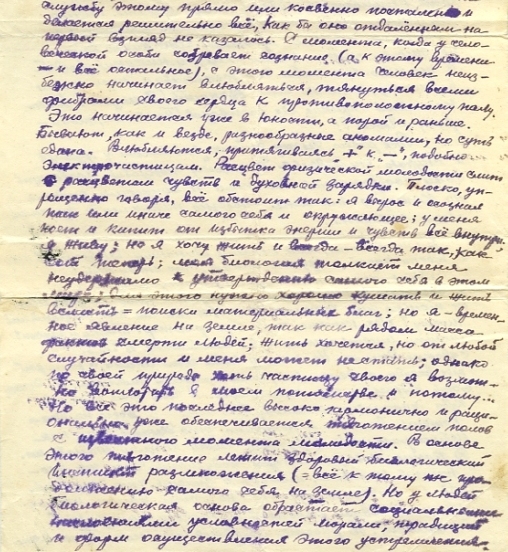 службу этому прямо или косвенно поставлено и
делается решительно всё, как бы оно отдалённым на
первый взгляд не казалось. С момента, когда у чело-
веческой особи созревает сознание (а к этому времени
и всё остальное), с этого момента человек неиз-
бежно начинает влюбляться, тянуться всеми
фибрами своего сердца к противоположному полу.
Это начинается уже в юности, а порой и раньше.
Бывают, как и везде, разнообразные аномалии, но суть
одна. Влюбляются, притягиваясь, "+" к "–", подобно
электрочастицам. Расцвет физической молодости слит
с расцветом чувств и духовной зарядки. Плоско, уп-
рощенно говоря, всё обстоит так: я вырос и осознал
так или иначе самого себя и окружающее; у меня
и кипит от избытка энергии и чувств всё внутри
я живу; но я хочу жить и всегда – всегда так, как
теперь; моя биология толкает меня
неудержимо к утверждению самого себя в этом
для этого нужно хорошо кушать и жить
= поиски материальных благ; но я – времен-
ное явление на земле, так как рядом масса
фактов смерти людей. Жить хочется, но от любой
случайности и меня может не стать; однако
по своей природе хоть частицу своего я
но повторить в своём потомстве. А потому...
Но всё это последнее высоко гармонично и раци-
онально уже обеспечивается тяготением полов
с момента молодости. В основе
этого тяготение лежит здоровый биологический
инстинкт размножения (= всё к тому же про-
должению самого себя на земле). Но у людей
биологическая основа обрастает социальными
условностей морали, традиций
и форм осуществления этого устремления.